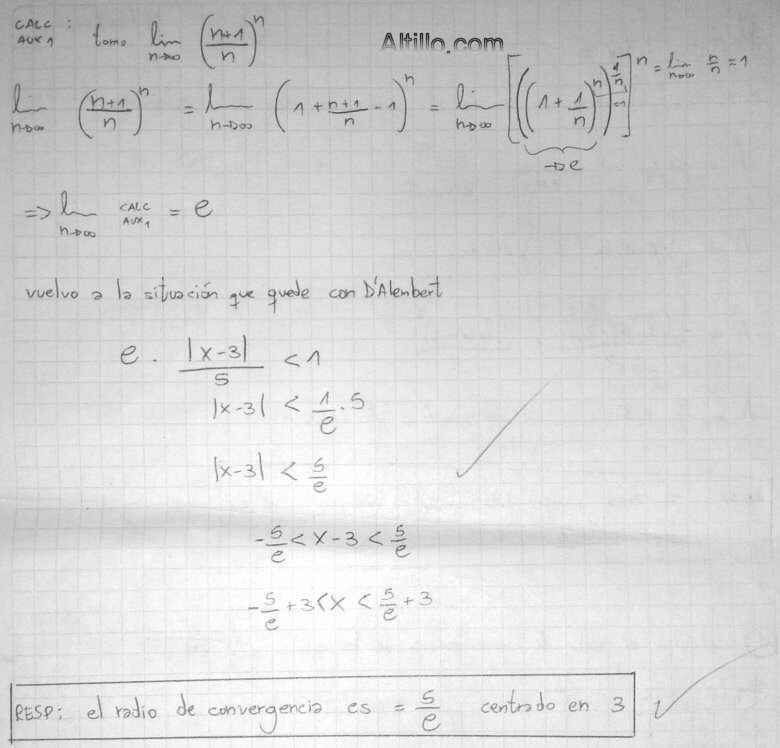 CALC AUX 1 : tomo lim n→∞ ((n+1)/n)^n
Altillo.com
lim n→∞ ((n+1)/n)^n = lim n→∞ (1 + (n+1)/n - 1)^n = lim n→∞ [((1 + 1/n)^n)^(1/n)]^n = lim n→∞ n/n = 1
→ e
=> lim n→∞ CALC AUX1 = e
vuelvo a la situación que quede con D'Alembert
e . |x-3|/5 < 1
|x-3| < 1/e . 5
|x-3| < 5/e
-5/e < x - 3 < 5/e
-5/e + 3 < x < 5/e + 3
RESP: el radio de convergencia es = 5/e centrado en 3